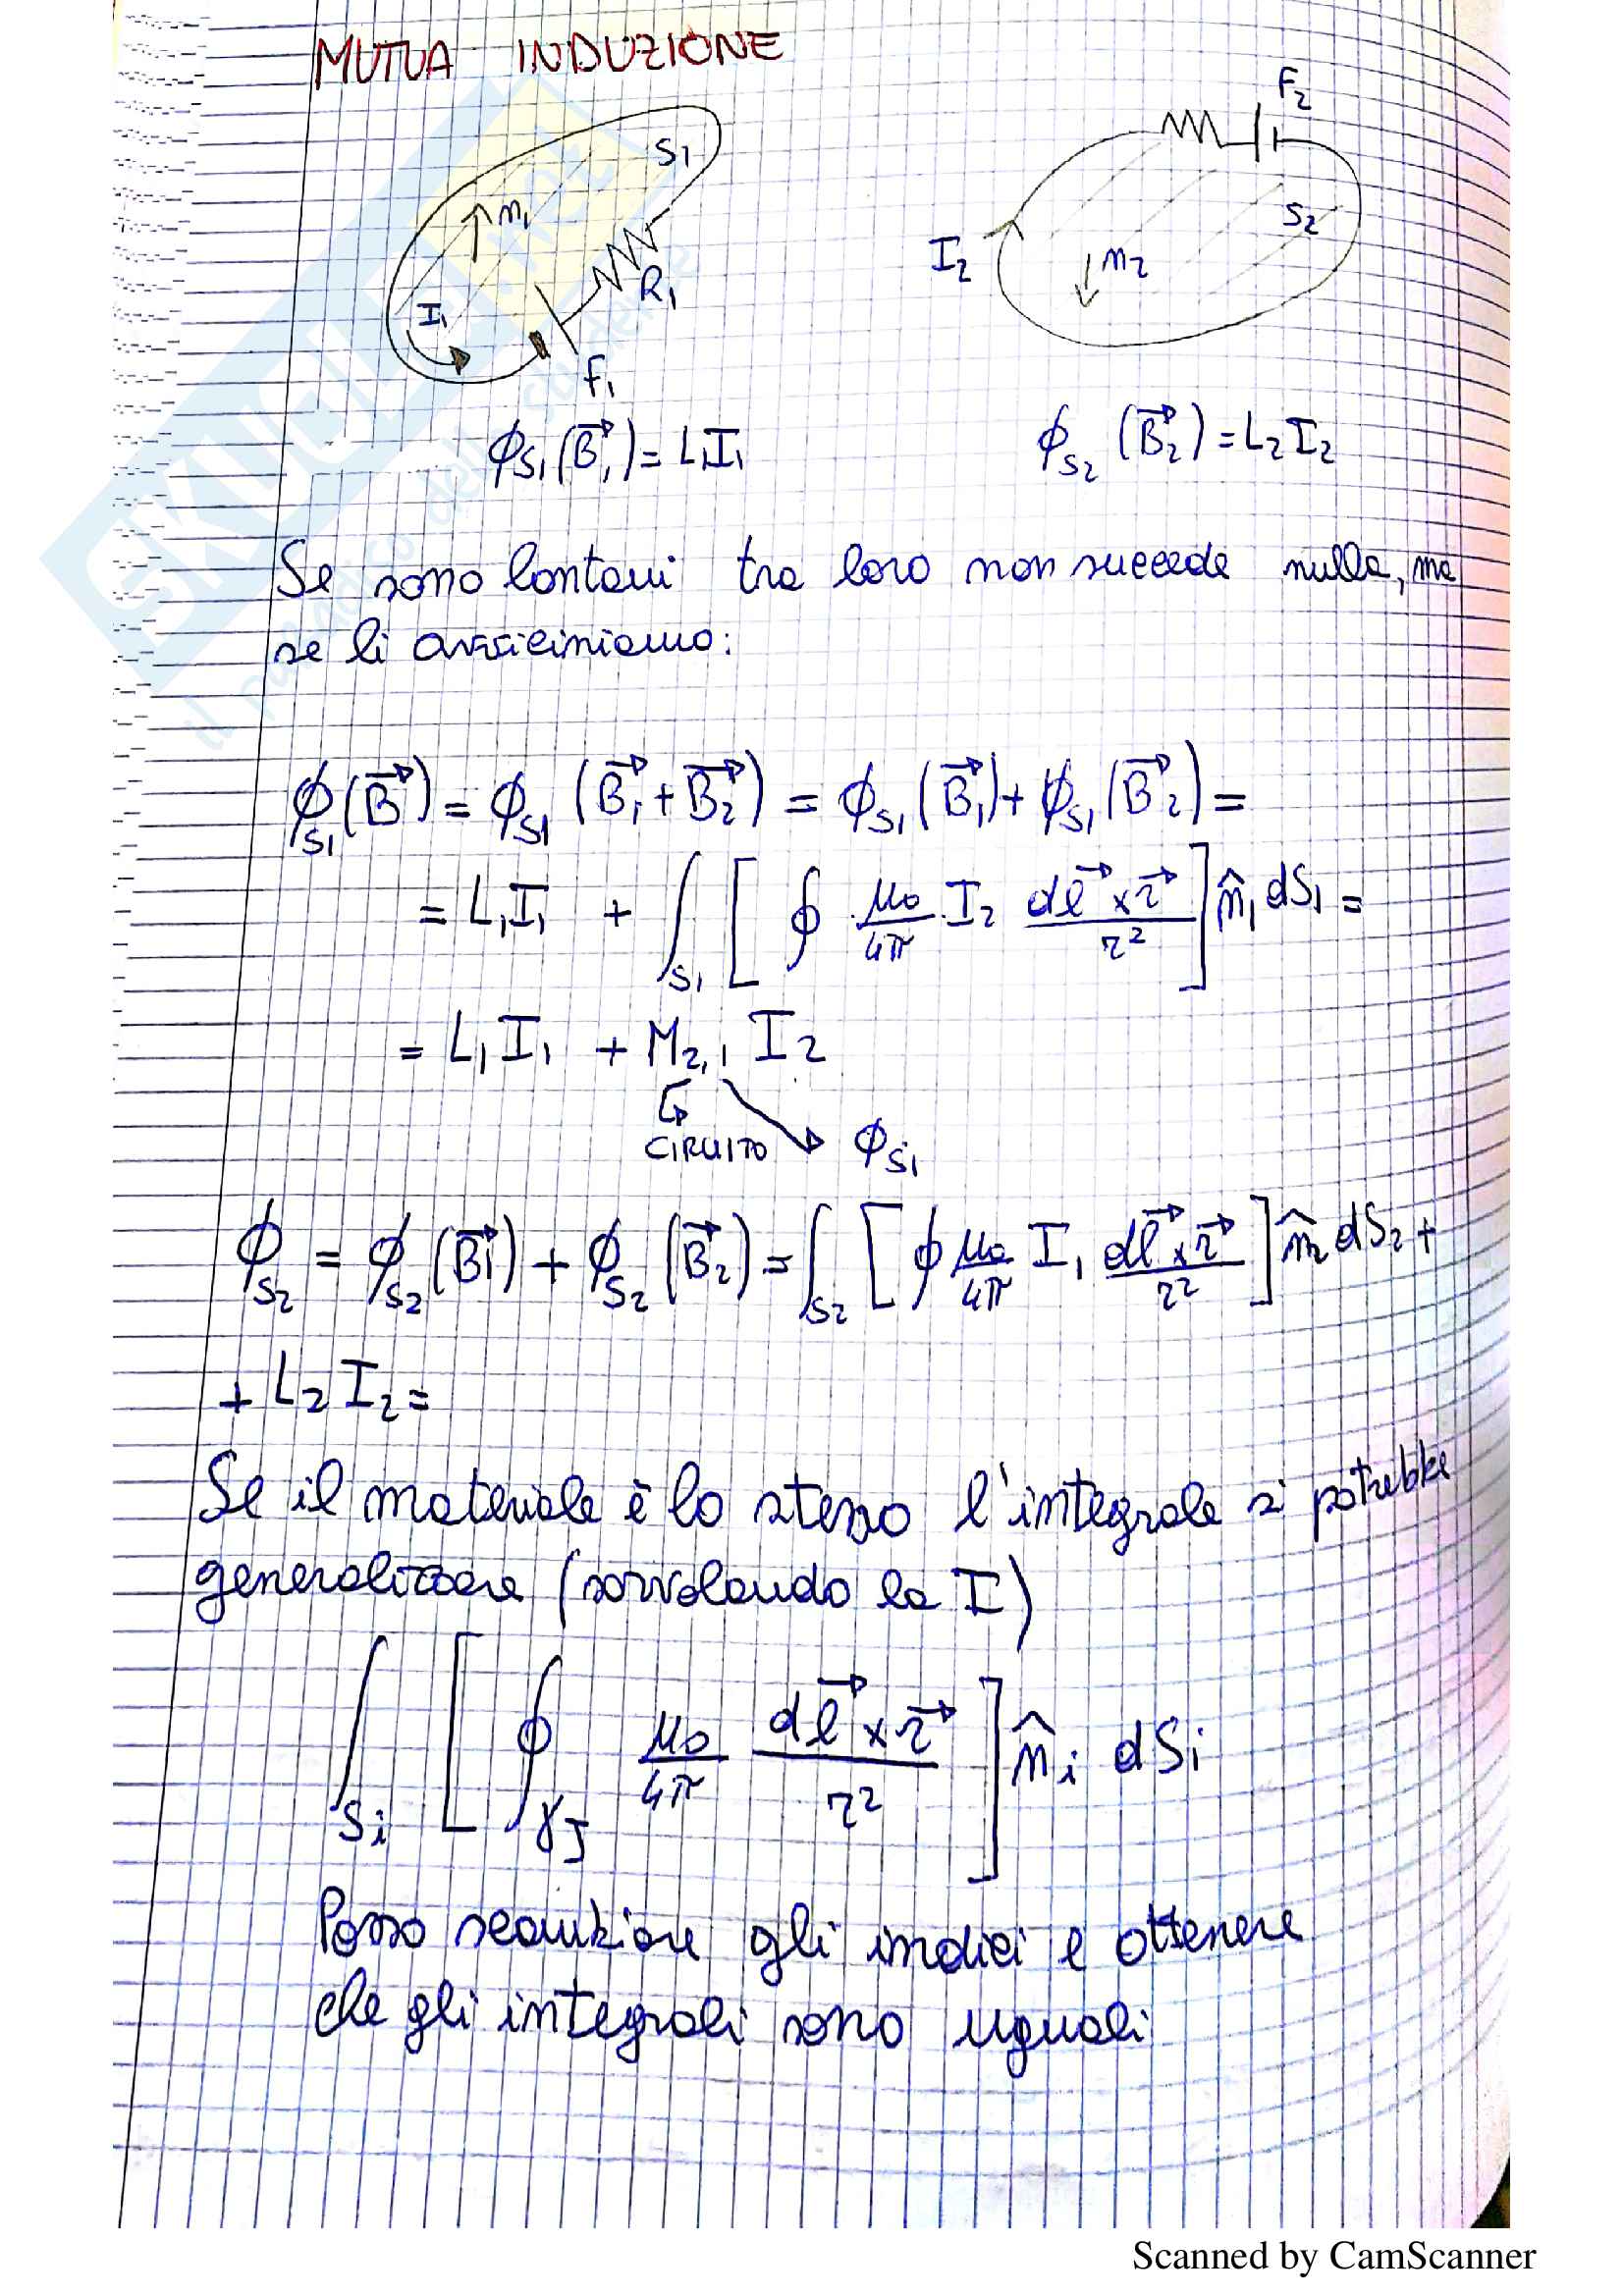 MUTUA INDUZIONE
S₁
n₁
I₁
R₁
F₁
F₂
S₂
I₂
n₂
ϕS₁(B⃗₁) = L₁I₁
ϕS₂(B⃗₂) = L₂I₂
Se sono lontani tra loro non succede nulla, ma
se li avviciniamo:
ϕS₁(B⃗) = ϕS₁(B⃗₁ + B⃗₂) = ϕS₁(B⃗₁) + ϕS₁(B⃗₂) =
= L₁I₁ + ∫S₁ [ ∮ μ₀/4π I₂ dl⃗ × r⃗ / r² ] n̂₁ dS₁ =
= L₁I₁ + M₂,₁ I₂
CIRUITO ϕS₁
ϕS₂ = ϕS₂(B⃗₁) + ϕS₂(B⃗₂) = ∫S₂ [ ∮ μ₀/4π I₁ dl⃗ × r⃗ / r² ] n̂₂ dS₂ +
+ L₂I₂ =
Se il materiale è lo stesso l'integrale si potrebbe
generalizzare (sorvolando la I)
∫Si [ ∮γJ μ₀/4π dl⃗ × r⃗ / r² ] n̂i dSi
Posso scambiare gli indici e ottenere
che gli integrali sono uguali
SKUOLA.net
il paradiso dello studente
Scanned by CamScanner